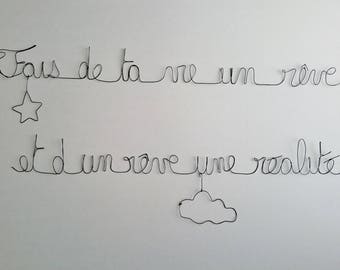 Fais de ta vie un rêve
et d'un rêve une realité